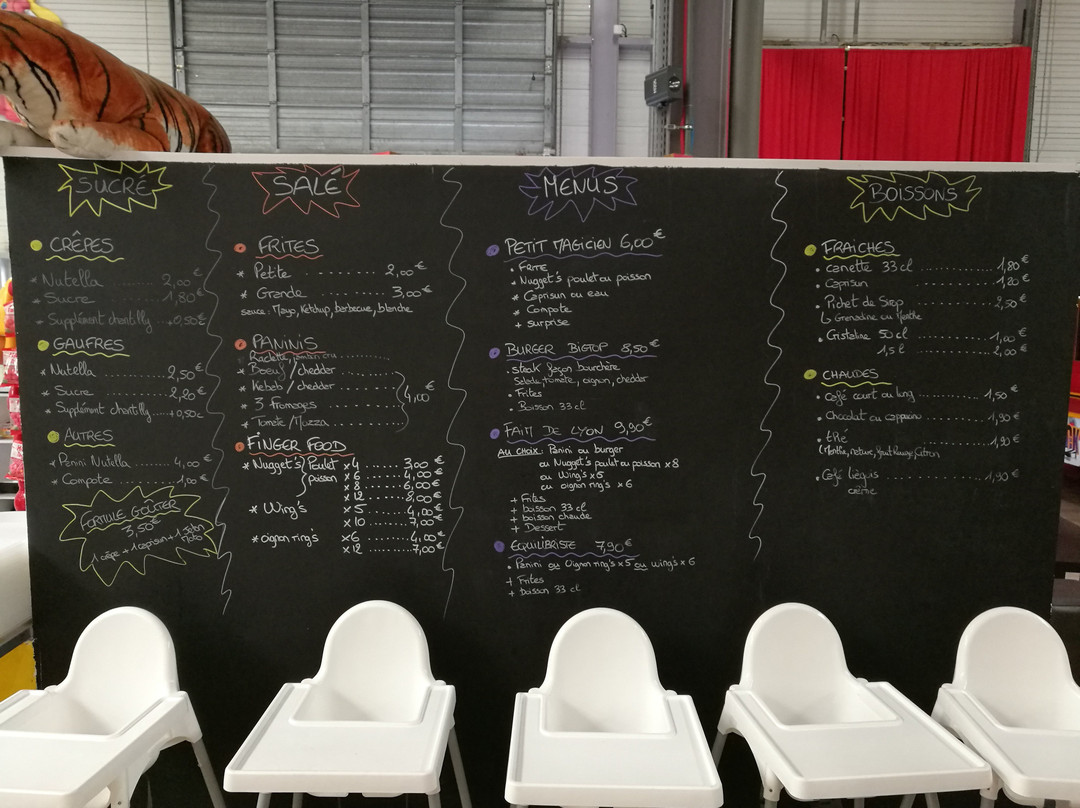 SUCRÉ
CRÊPES
* Nutella ........ 2,00€
* Sucre ........ 1,80€
* Supplément chantilly ..+0,50€
GAUFRES
* Nutella ........ 2,50€
* Sucre ........ 2,20€
* Supplément chantilly....+0,50€
AUTRES
* Panini Nutella ........ 4,00€
* Compote ........ 1,00€
FORMULE GOÛTER
3,50€
1 crêpe + 1 caprisun + 1 jeton
SALÉ
FRITES
* Petite ........ 2,00€
* Grande ........ 3,00€
sauce : Mayo, Ketchup, barbecue, blanche
PANINIS
Raclette, jambon cru ........
* Boeuf / chedder ........
* Kebab / chedder ........ 4,00€
* 3 fromages ........
* Tomate / Mozza ........
FINGER FOOD
* Nugget's Poulet x4 ...... 3,00€
poisson x6 ...... 4,00€
x8 ...... 6,00€
x12 ...... 8,00€
* Wing's x5 ...... 4,00€
x10 ...... 7,00€
* oignon ring's x6 ...... 4,00€
x12 ...... 7,00€
MENUS
PETIT MAGICIEN 6,00€
* Frite
* Nugget's poulet ou poisson
* Caprisun ou eau
* Compote
+ surprise
BURGER BIGTOP 8,50€
. steak façon bouchère
Salade, tomate, oignon, chedder
. Frites
. Boisson 33 cl
FAIM DE LYON 9,90€
AU CHOIX : Panini ou burger
ou Nugget's poulet ou poisson x8
ou Wing's x5
ou oignon ring's x6
+ Frites
+ boisson 33 cl
+ boisson chaude
+ Dessert
EQUILIBRISTE 7,90€
. Panini ou Oignon ring's x5 ou wing's x6
+ Frites
+ boisson 33 cl
BOISSONS
FRAICHES
. canette 33 cl ........ 1,80€
. Caprisun ........ 1,20€
. Pichet de Sirop ........ 2,50€
↳ Grenadine ou Menthe
. Cristaline 50 cl ........ 1,00€
1,5 l ........ 2,00€
CHAUDES
. Café court ou long ........ 1,50€
. Chocolat ou cappucino ........ 1,90€
. thé ........ 1,90€
(Menthe, nature, fruit rouge, citron
. Café liégois ........ 1,90€
crème